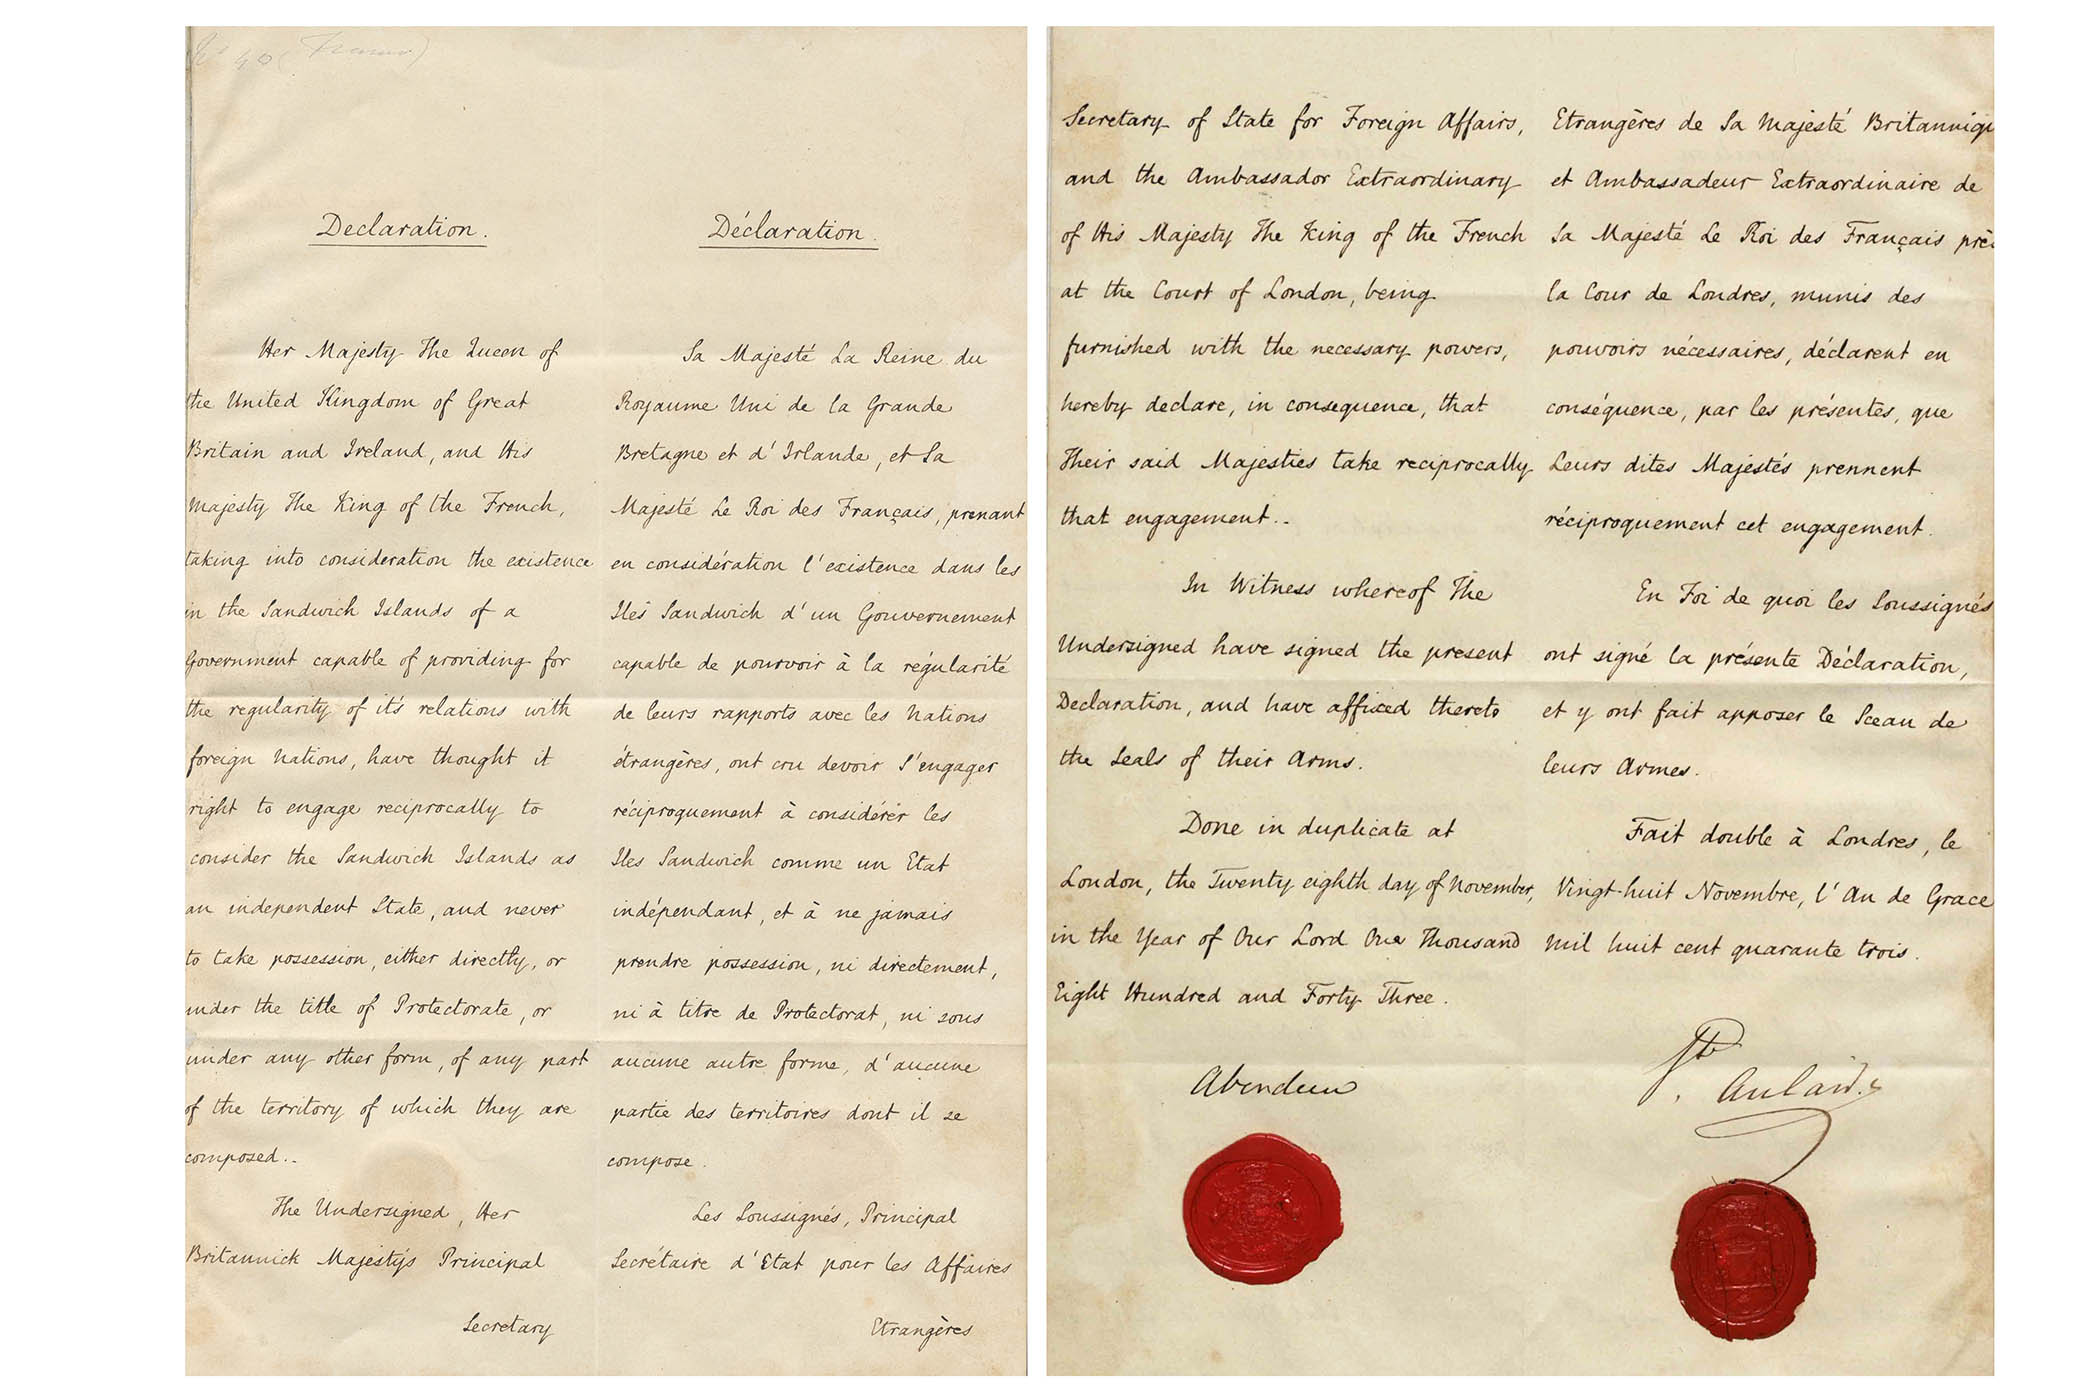 Declaration.
Her Majesty The Queen of
the United Kingdom of Great
Britain and Ireland, and His
Majesty The King of the French,
taking into consideration the existence
in the Sandwich Islands of a
Government capable of providing for
the regularity of it's relations with
foreign Nations, have thought it
right to engage reciprocally to
consider the Sandwich Islands as
an independent State, and never
to take possession, either directly, or
under the title of Protectorate, or
under any other form, of any part
of the territory of which they are
composed..
The Undersigned, Her
Britannick Majesty's Principal
Secretary
Déclaration.
Sa Majesté La Reine du
Royaume Uni de la Grande
Bretagne et d'Irlande, et Sa
Majesté Le Roi des Français, prenant
en considération l'existence dans les
Iles Sandwich d'un Gouvernement
capable de pourvoir à la régularité
de leurs rapports avec les Nations
étrangères, ont cru devoir s'engager
réciproquement à considérer les
Iles Sandwich comme un Etat
indépendant, et à ne jamais
prendre possession, ni directement,
ni à titre de Protectorat, ni sous
aucune autre forme, d'aucune
partie des territoires dont il se
compose.
Les Soussignés, Principal
Secrétaire d'Etat pour les Affaires
Etrangères
Secretary of State for Foreign Affairs,
and the Ambassador Extraordinary
of His Majesty The King of the French
at the Court of London, being
furnished with the necessary powers,
hereby declare, in consequence, that
Their said Majesties take reciprocally
that engagement..
In Witness whereof The
Undersigned have signed the present
Declaration, and have affixed thereto
the Seals of their Arms.
Done in duplicate at
London, the Twenty eighth day of November,
in the Year of Our Lord One Thousand
Eight Hundred and Forty Three.
Aberdeen
Etrangères de Sa Majesté Britanniqu
et Ambassadeur Extraordinaire de
Sa Majesté Le Roi des Français prè
la Cour de Londres, munis des
pouvoirs nécessaires, déclarent en
conséquence, par les présentes, que
Leurs dites Majestés prennent
réciproquement cet engagement.
En Foi de quoi les Soussignés
ont signé la présente Déclaration,
et y ont fait apposer le Sceau de
leurs Armes.
Fait double à Londres, le
Vingt-huit Novembre, l'An de Grace
mil huit cent quarante trois.
Ste
Aulaire